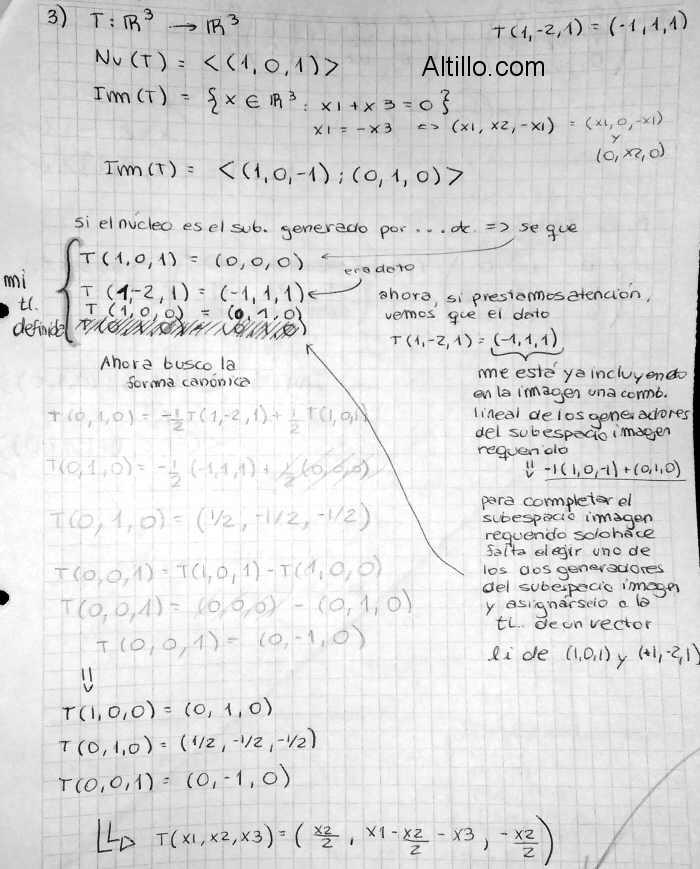 3) T: ℝ³ → ℝ³
T(1,-2,1) = (-1,1,1)
Nu(T) = <(1,0,1)>
Altillo.com
Im(T) = {x ∈ ℝ³: x1 + x3 = 0}
x1 = -x3 <=> (x1, x2, -x1) = (x1, 0, -x1)
y
(0, x2, 0)
Im(T) = <(1,0,-1); (0,1,0)>
si el núcleo es el sub. generado por ... etc. => se que
T(1,0,1) = (0,0,0)
era dato
T(1,-2,1) = (-1,1,1)
T(1,0,0) = (0,1,0)
mi
tl.
definida
ahora, si prestamos atención,
vemos que el dato
T(1,-2,1) = (-1,1,1)
me está ya incluyendo
en la imagen una comb.
lineal de los generadores
del subespacio imagen
requerido
-1(1,0,-1) + (0,1,0)
para completar el
subespacio imagen
requerido solo hace
falta elegir uno de
los dos generadores
del subespacio imagen
y asignárselo a la
tl. de un vector
li de (1,0,1) y (+1,-2,1)
Ahora busco la
forma canónica
T(0,1,0) = -1/2 T(1,-2,1) + 1/2 T(1,0,1)
T(0,1,0) = -1/2 (-1,1,1) + 1/2 (0,0,0)
T(0,1,0) = (1/2, -1/2, -1/2)
T(0,0,1) = T(1,0,1) - T(1,0,0)
T(0,0,1) = (0,0,0) - (0,1,0)
T(0,0,1) = (0,-1,0)
T(1,0,0) = (0,1,0)
T(0,1,0) = (1/2, -1/2, -1/2)
T(0,0,1) = (0,-1,0)
T(x1,x2,x3) = (x2/2, x1 - x2/2 - x3, -x2/2)